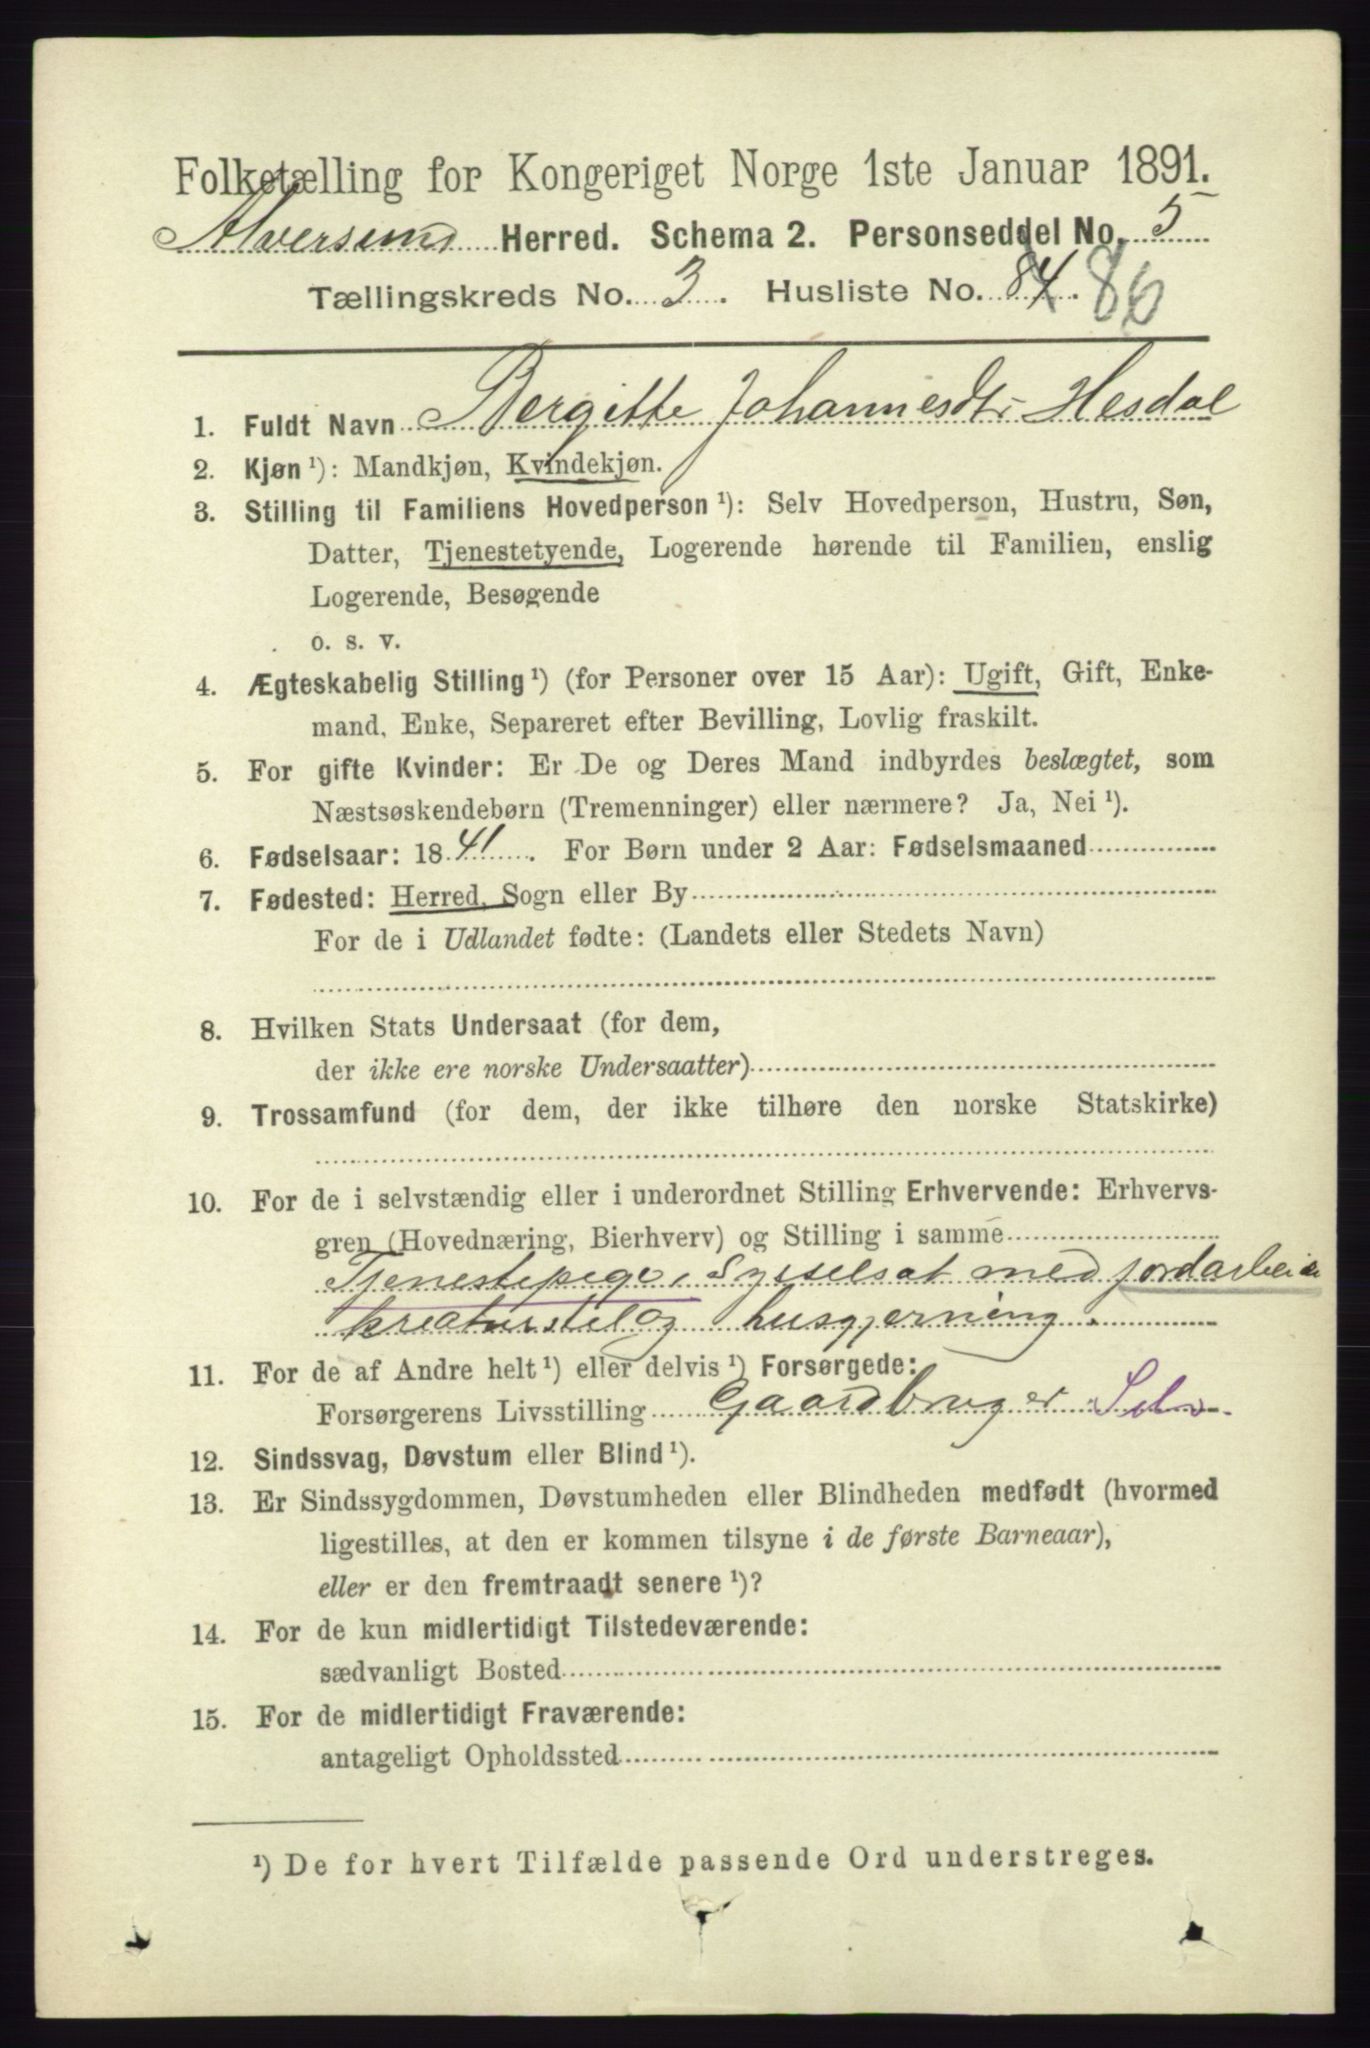 Folketælling for Kongeriget Norge 1ste Januar 1891.
Alversund Herred. Schema 2. Personseddel No. 5
Tællingskreds No. 3. Husliste No. 84. 86
1. Fuldt Navn Bergitte Johannesdtr Hesdal
2. Kjøn ¹): Mandkjøn, Kvindekjøn.
3. Stilling til Familiens Hovedperson ¹): Selv Hovedperson, Hustru, Søn,
Datter, Tjenestetyende, Logerende hørende til Familien, enslig
Logerende, Besøgende
o. s. v.
4. Ægteskabelig Stilling ¹) (for Personer over 15 Aar): Ugift, Gift, Enke-
mand, Enke, Separeret efter Bevilling, Lovlig fraskilt.
5. For gifte Kvinder: Er De og Deres Mand indbyrdes beslægtet, som
Næstsøskendebørn (Tremenninger) eller nærmere? Ja, Nei ¹).
6. Fødselsaar: 1841. For Børn under 2 Aar: Fødselsmaaned
7. Fødested: Herred, Sogn eller By
For de i Udlandet fødte: (Landets eller Stedets Navn)
8. Hvilken Stats Undersaat (for dem,
der ikke ere norske Undersaatter)
9. Trossamfund (for dem, der ikke tilhøre den norske Statskirke)
10. For de i selvstændig eller i underordnet Stilling Erhvervende: Erhvervs-
gren (Hovednæring, Bierhverv) og Stilling i samme
Tjenestepige, Sysselsat med jordarbeide
kreaturstel og husgjerning.
11. For de af Andre helt ¹) eller delvis ¹) Forsørgede:
Forsørgerens Livsstilling Gaardbruger Selv
12. Sindssvag, Døvstum eller Blind ¹).
13. Er Sindssygdommen, Døvstumheden eller Blindheden medfødt (hvormed
ligestilles, at den er kommen tilsyne i de første Barneaar),
eller er den fremtraadt senere ¹)?
14. For de kun midlertidigt Tilstedeværende:
sædvanligt Bosted
15. For de midlertidigt Fraværende:
antageligt Opholdssted
¹) De for hvert Tilfælde passende Ord understreges.